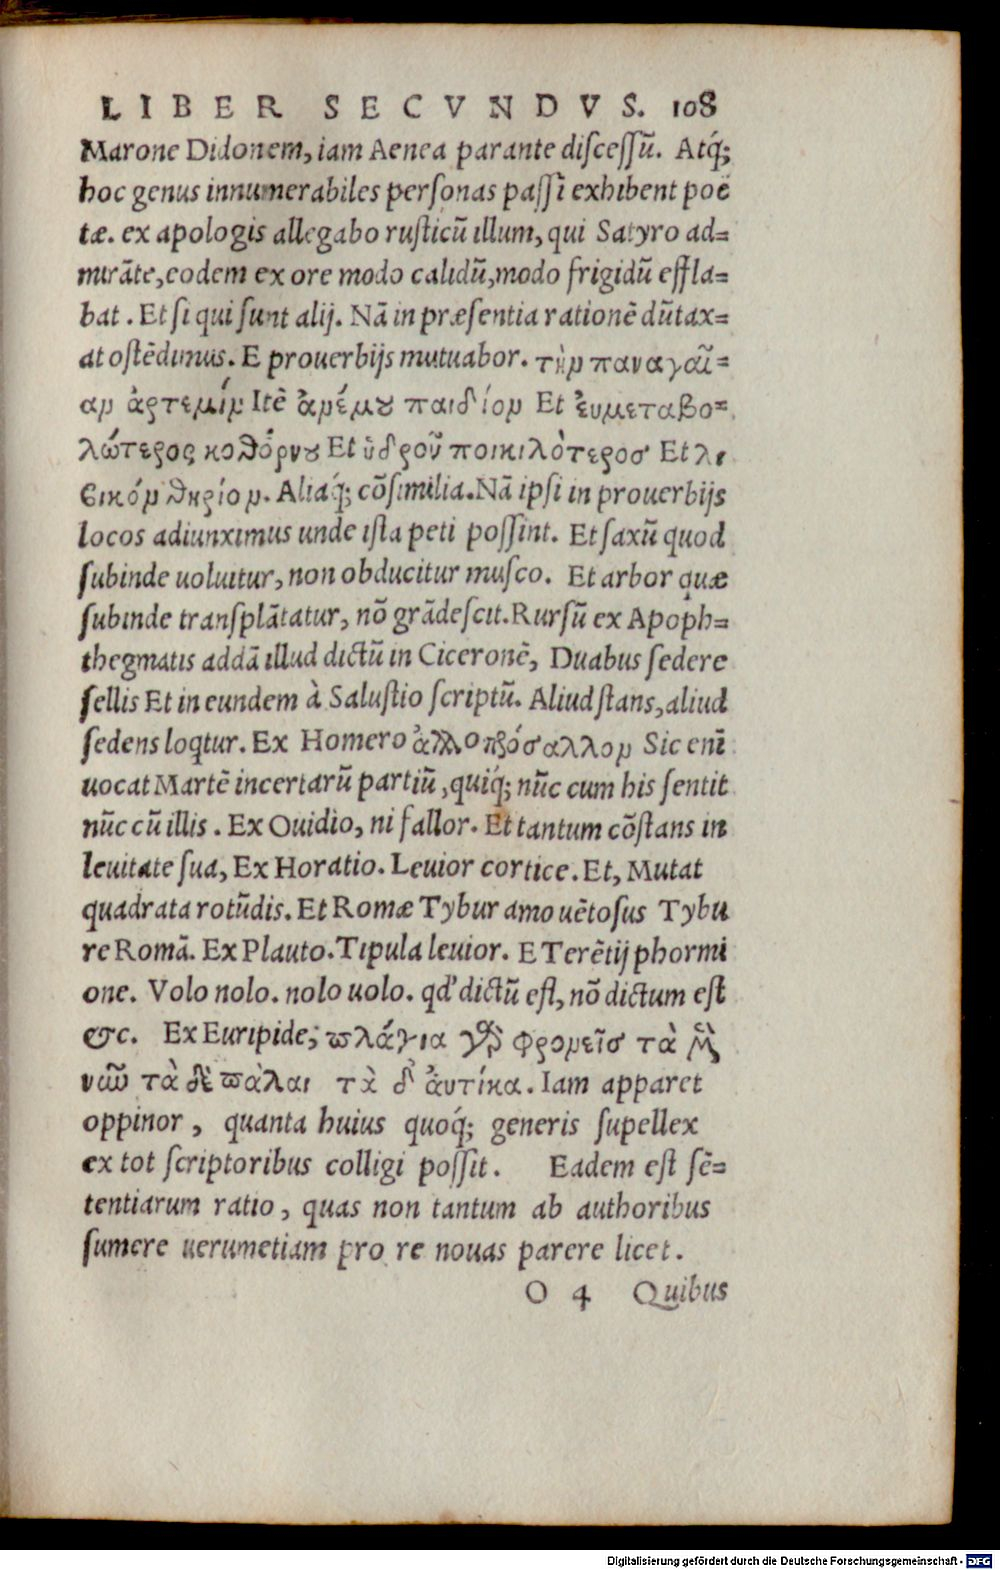 LIBER SECVNDVS. 108
Marone Didonem, iam Aenea parante discessũ. Atq́;
hoc genus innumerabiles personas passĩ exhibent poë
tæ. ex apologis allegabo rusticũ illum, qui Satyro ad=
mirãte, eodem ex ore modo calidũ, modo frigidũ effla=
bat. Et si qui sunt alij. Nã in præsentia rationẽ dũtax=
at ostẽdimus. E prouerbijs mutuabor. τὴν παναγαῖ=
αν ἀρτεμίν Itẽ ἀνέμου παιδίον Et ἐυμεταβο=
λώτερος κοθόρνου Et ὑδροῦ ποικιλότερος Et λι
βικόν θηρίον. Aliaq́; cõsimilia. Nã ipsi in prouerbijs
locos adiunximus unde ista peti possint. Et saxũ quod
subinde uoluitur, non obducitur musco. Et arbor quæ
subinde transplãtatur, nõ grãdescit. Rursũ ex Apoph=
thegmatis addã illud dictũ in Ciceronẽ, Duabus sedere
sellis Et in eundem à Salustio scriptũ. Aliud stans, aliud
sedens loqtur. Ex Homero ἀλλοπρόσαλλον Sic enĩ
uocat Martẽ incertarũ partiũ, quiq́; nũc cum his sentit
nũc cũ illis. Ex Ouidio, ni fallor. Et tantum cõstans in
leuitate sua, Ex Horatio. Leuior cortice. Et, Mutat
quadrata rotũdis. Et Romæ Tybur amo uẽtosus Tybu
re Romã. Ex Plauto. Tipula leuior. E Terẽtij phormi
one. Volo nolo. nolo uolo. qd' dictũ est, nõ dictum est
&c. Ex Euripide; πλάγια γὰρ φρονεῖσ τὰ μὲν
νῶν τὰ δὲ πάλαι τὰ δ' ἀυτίκα. Iam apparet
oppinor, quanta huius quoq́; generis supellex
ex tot scriptoribus colligi possit. Eadem est sẽ=
tentiarum ratio, quas non tantum ab authoribus
sumere uerumetiam pro re nouas parere licet.
O 4 Quibus
Digitalisierung gefördert durch die Deutsche Forschungsgemeinschaft - DFG